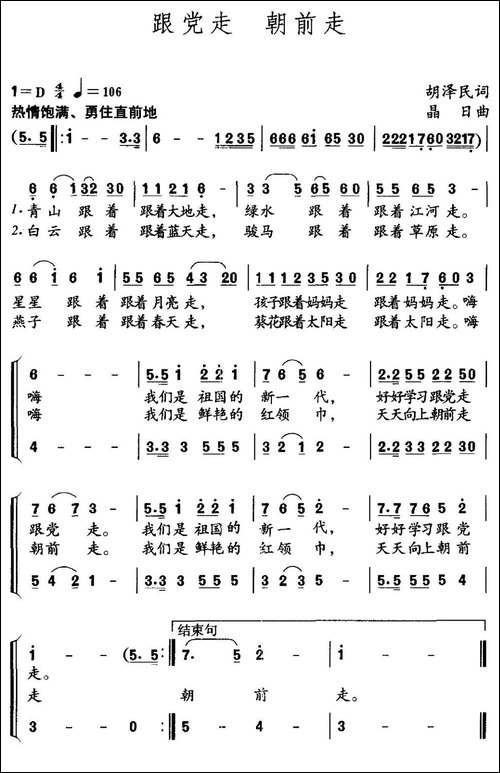 跟党走 朝前走
1=D 4/4 ♩=106
胡泽民词
热情饱满、勇住直前地
晶 日 曲
(5. 5 ‖: 1 - - 3.3 | 6 - - 1235 | 666061 65 30 | 2221760 3217) |
6 6 1 32 30 | 1 1 2 1 6 - | 3 3 5 65 60 | 5 5 65 3 - |
1.青 山 跟 着 跟着大地走, 绿水 跟 着 跟着江河走。
2.白 云 跟 着 跟着蓝天走, 骏马 跟 着 跟着草原走。
6 6 1 6 0 | 55 65 43 20 | 111235 30 | 22 17 60 3 |
星星 跟 着 跟着月亮走, 孩子跟着妈妈走 跟着妈妈走。嗨
燕子 跟 着 跟着春天走, 葵花跟着太阳走 跟着太阳走。嗨
6 - - - | 5.5 1 22 1 | 7 6 5 6 - | 2.2 55 22 50 |
嗨 我们是 祖国的 新一 代, 好好学习跟党走
嗨 我们是 鲜艳的 红领 巾, 天天向上朝前走
4 - - - | 3.3 3 5 5 5 | 3 2 1 2 - |
7 6 7 3 - | 5.5 1 22 1 | 7 6 5 2 - | 7. 7 765 2 |
跟党 走。 我们是 祖国的 新一 代, 好好学习跟 党
朝前 走。 我们是 鲜艳的 红领 巾, 天天向上朝 前
5 4 2 1 - | 3.3 3 5 5 5 | 3 2 3 5 - | 5. 5 5 4 2 5 |
结束句
1 - - (5. 5 :‖ 7. 5 2 - | 1 - - - ‖
走。
走 朝 前 走。
3 - - 0 :‖ 5 - 4 - | 3 - - - ‖